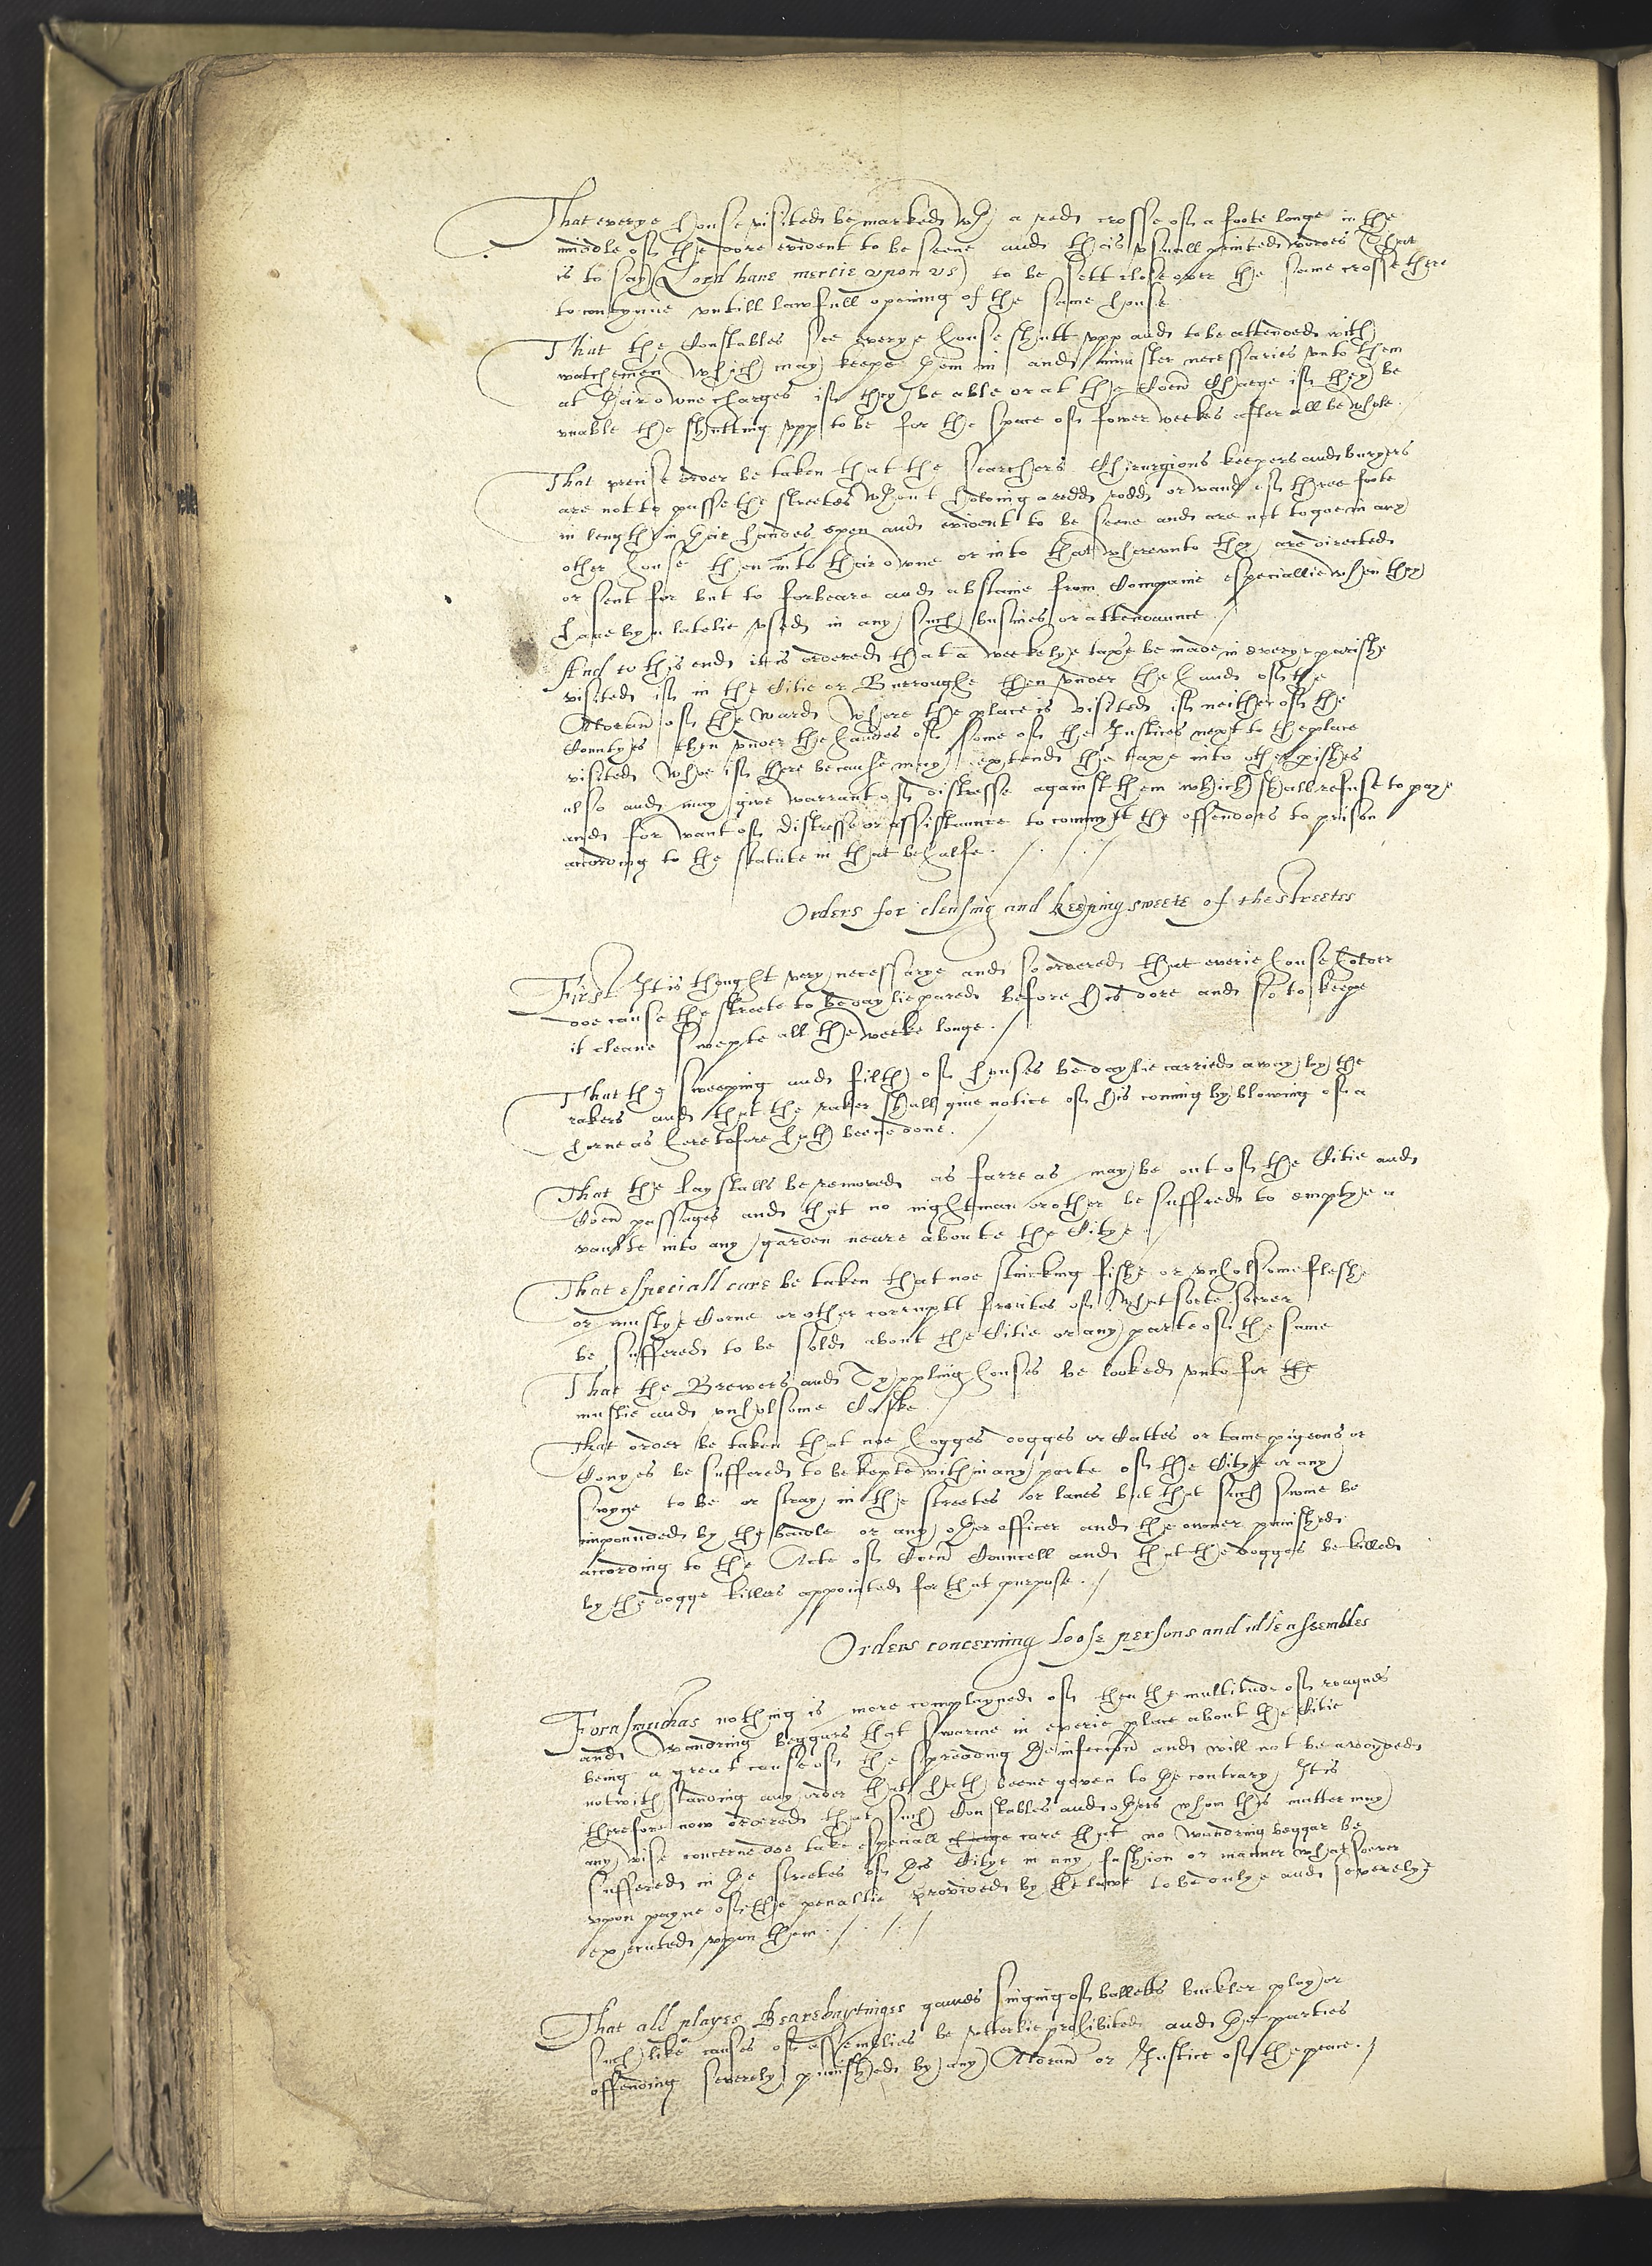 That everye house visited be marked wth a redd crosse of a foote longe in the
middle of the dore evident to be seene and this usuall printed wordes (That
is to say) (Lord haue mercie vpon vs) to be sett close over the same crosse there
to contynue vntill lawfull opening of the same house
That the Constables see everye house shutt vpp and to be attended with
watchemen which may keepe them in and minister necessaries vnto them
at their owne charges if they be able or at the Coen Charge if they be
vnable the shutting vpp to be for the space of fower weekes after all be whole.
That precise order be taken that the searchers Chirurgions keepers and buryers
are not to passe the streetes wthout holding a redd rodd or wand of three foote
in length in their handes open and evident to be seene and are not to goe in any
other house then into their owne or into that wherevnto they are directed
or sent for but to forbeare and abstaine from Companie especiallie when they
haue byn latelie vsed in any such busines or attendaunce /
And to this end it is ordered that a weekelye taxe be made in everye parishe
visited if in the Citie or Burroughe then vnder the hand of the
Alderan of the ward where the place is visited if neither of the
Countyes then vnder the handes of some of the Justices next to the place
visited Whoe if there be cause may extend the taxe into other pishes
also and may give warrant of distresse against them which shall refuse to paye
and for want of distresse or assistaunce to commytt the offendors to prison
according to the statute in that behalfe. / . / . /
Orders for clensing and keeping sweete of the streetes
First It is thought very necessarye and so ordered that everie householder
doe cause the streete to be daylie pared before his dore and so to keepe
it cleane swepte all the weeke longe. /
That the sweeping and filth of houses be daylie carried away by the
rakers and that the raker shall giue notice of his coming by blowing of a
horne as heretofore hath beene done. /
That the Laystalls be removed as farre as may be out of the Citie and
Coen passages and that no nightman or other be suffred to emptye a
vaulte into any garden neare aboute the Citye /
That speciall care be taken that noe stincking fishe or vnholsome fleshe
or mustye Corne or other corruptt fruites of what sorte soever
be suffered to be sold about the Citie or any parte of the same
That the Brewers and Typpling houses be looked vnto for the
mustie and vnholsome Caske /
That order be taken that noe hogges dogges or Cattes or tame pigeons or
Conyes be suffered to be kepte within any parte of the Citye or any
swyne to be or stray in the streetes or lanes but that such swine be
impounded by the beadle or any other officer and the owner punished
according to the Acte of Coen Councell and that the dogges be killed
by the dogge killers appointed for that purpose. /
Orders concerning loose persons and idle assembles
Forasmuchas nothing is more complayned of then the multitude of roagues
and wandring beggars that swarme in everie place about the Citie
being a great cause of the spreading the infeccon and will not be avoyded
notwithstanding any order that hath beene geven to the contrary It is
therefore now ordered that such Constables and others whom this matter may
any wise concerne doe take especiall charge care that no wandring beggar be
suffered in the streetes of this Citye in any fashion or manner whatsoever
vpon payne of the penaltie provided by the lawe to be dulye and severelye
executed vpon them . / . / : /
That all playes Bearebaytinges games singing of ballettes buckler play or
such like causes of assemblies be vtterlie prohibited and the parties
offending severely punished by any Alderan or Justice of the peace. /